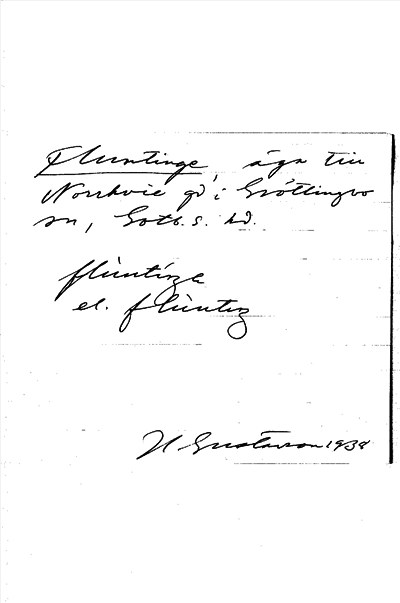 Fluntinge, äga till
Norrkvie gd i Grötlingbo
sn, Gotl. s. hd.
fluntiŋe
el. fluntiŋ
H Gustavson 1938